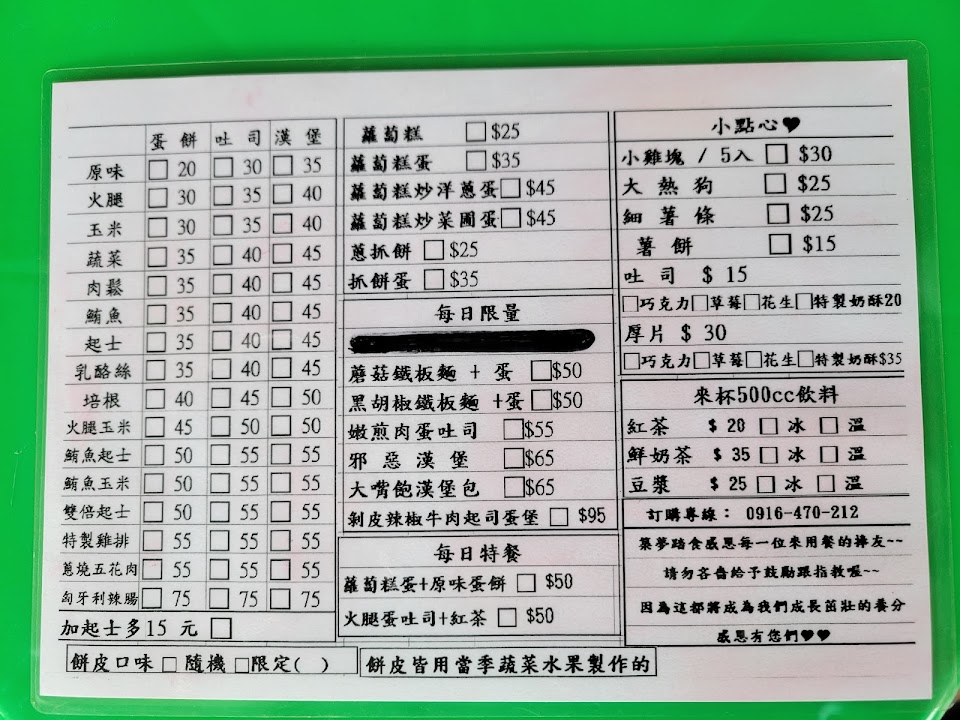 蛋餅 吐司 漢堡
原味 □ 20 □ 30 □ 35
火腿 □ 30 □ 35 □ 40
玉米 □ 30 □ 35 □ 40
蔬菜 □ 35 □ 40 □ 45
肉鬆 □ 35 □ 40 □ 45
鮪魚 □ 35 □ 40 □ 45
起士 □ 35 □ 40 □ 45
乳酪絲 □ 35 □ 40 □ 45
培根 □ 40 □ 45 □ 50
火腿玉米 □ 45 □ 50 □ 50
鮪魚起士 □ 50 □ 55 □ 55
鮪魚玉米 □ 50 □ 55 □ 55
雙倍起士 □ 50 □ 55 □ 55
特製雞排 □ 55 □ 55 □ 55
蔥燒五花肉 □ 55 □ 55 □ 55
匈牙利辣腸 □ 75 □ 75 □ 75
加起士多15 元 □
餅皮口味 □ 隨機 □限定( )
蘿蔔糕 □$25
蘿蔔糕蛋 □$35
蘿蔔糕炒洋蔥蛋□$45
蘿蔔糕炒菜圃蛋□$45
蔥抓餅 □$25
抓餅蛋 □$35
每日限量
蘑菇鐵板麵 + 蛋 □$50
黑胡椒鐵板麵 +蛋□$50
嫩煎肉蛋吐司 □$55
邪惡漢堡 □$65
大嘴飽漢堡包 □$65
剝皮辣椒牛肉起司蛋堡 □ $95
每日特餐
蘿蔔糕蛋+原味蛋餅 □ $50
火腿蛋吐司+紅茶 □ $50
餅皮皆用當季蔬菜水果製作的
小點心♥
小雞塊 / 5入 □ $30
大熱狗 □ $25
細薯條 □ $25
薯餅 □ $15
吐司 $ 15
□巧克力□草莓□花生□特製奶酥20
厚片 $ 30
□巧克力□草莓□花生□特製奶酥$35
來杯500cc飲料
紅茶 $ 20 □ 冰 □ 溫
鮮奶茶 $ 35 □ 冰 □ 溫
豆漿 $ 25 □ 冰 □ 溫
訂購專線： 0916-470-212
築夢踏食感恩每一位來用餐的捧友~~
請勿吝嗇給予鼓勵跟指教喔~~
因為這都將成為我們成長茁壯的養分
感恩有您們♥♥